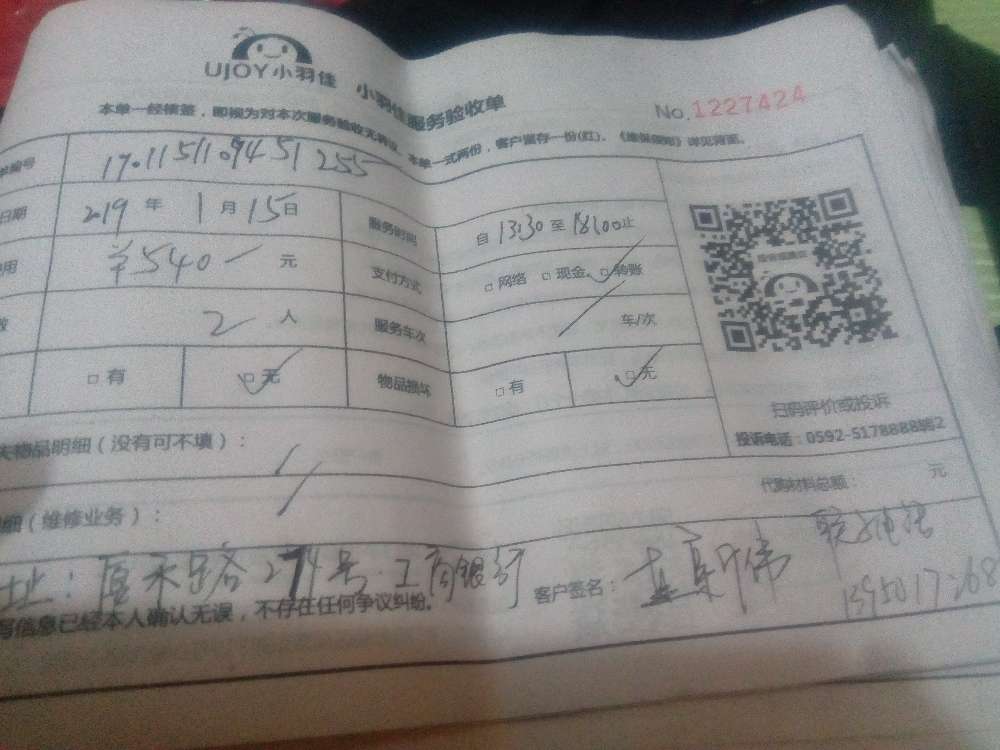 UJOY小羽佳 小羽佳服务验收单
No.1227424
本单一经横签，即视为对本次服务验收无异议。本单一式两份，客户留存一份(红)。《维保须知》详见背面。
单编号 1901151109451255
日期 2019 年 1 月 15 日 服务时间 自 13:30 至 18:00 止
用 ¥540 元 支付方式 □ 网络 □ 现金 □ 转账
数 2 人 服务车次 / 车/次
□ 有 □ 无 物品损坏 □ 有 □ 无
扫码评价或投诉
投诉电话：0592-5178888
失物品明细（没有可不填）： /
明细（维修业务）： / 代购材料总额： 元
址：厦禾路274号·工商银行 客户签名：
写信息已经本人确认无误，不存在任何争议纠纷。